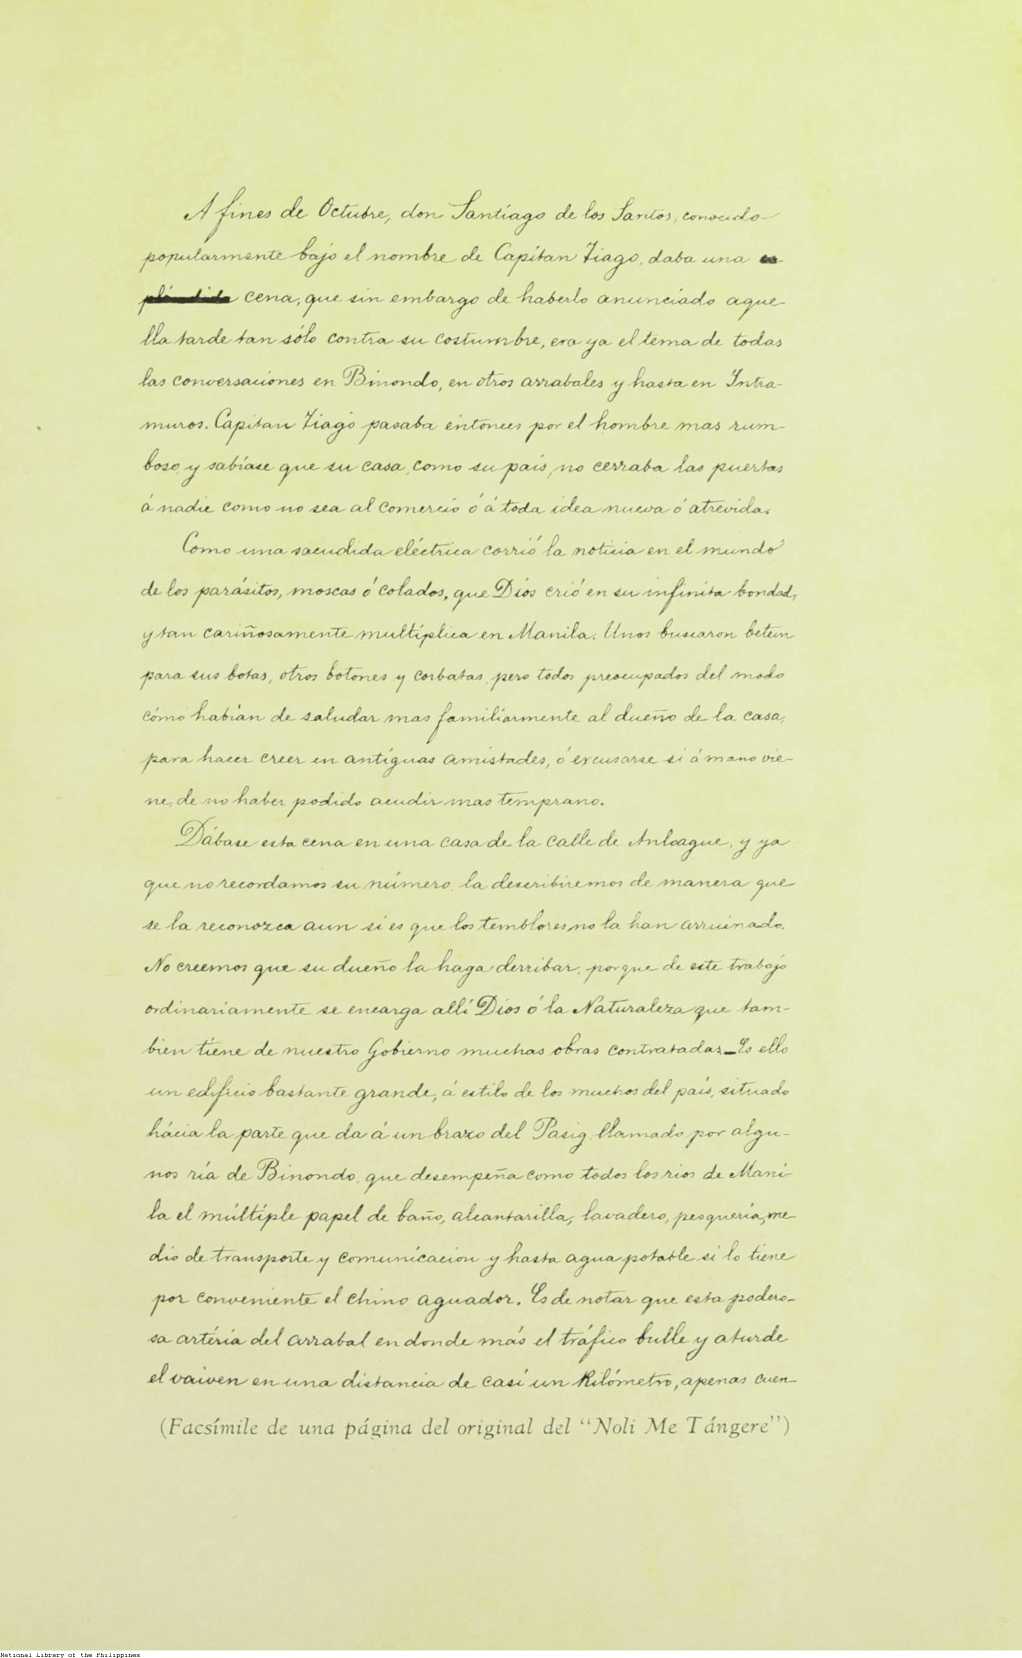 A fines de Octubre, don Santiago de los Santos, conocido
popularmente bajo el nombre de Capitan Tiago, daba una es
pléndida cena, que sin embargo de haberlo anunciado aque-
lla tarde tan sólo contra su costumbre, era ya el tema de todas
las conversaciones en Binondo, en otros arrabales y hasta en Intra-
muros. Capitan Tiago pasaba entonces por el hombre mas rum-
boso, y sabíase que su casa, como su país, no cerraba las puertas
á nadie como no sea al comercio ó á toda idea nueva ó atrevida.
Como una sacudida eléctrica corrió la noticia en el mundo
de los parásitos, moscas ó colados, que Dios crió en su infinita bondad,
y tan cariñosamente multiplica en Manila. Unos buscaron betun
para sus botas, otros botones y corbatas, pero todos preocupados del modo
cómo habían de saludar mas familiarmente al dueño de la casa,
para hacer creer en antíguas amistades, ó excusarse si á mano vie-
ne, de no haber podido acudir mas temprano.
Dábase esta cena en una casa de la calle de Anloague, y ya
que no recordamos su número, la describiremos de manera que
se la reconozca aun si es que los temblores no la han arruinado.
No creemos que su dueño la haga derribar, porque de este trabajo
ordinariamente se encarga allí Dios ó la Naturaleza que tam-
bien tiene de nuestro Gobierno muchas obras contratadas_Es ello
un edificio bastante grande, á estilo de los muchos del país, situado
hácia la parte que da á un brazo del Pasig, llamado por algu-
nos ría de Binondo, que desempeña como todos los rios de Mani
la el múltiple papel de baño, alcantarilla, lavadero, pesquería, me
dio de transporte y comunicacion y hasta agua potable si lo tiene
por conveniente el chino aguador. Es de notar que esta podero-
sa artéria del arrabal en donde más el tráfico bulle y aturde
el vaiven en una distancia de casi un kilómetro, apenas cuen-
(Facsímile de una página del original del "Noli Me Tángere")
National Library of the Philippines